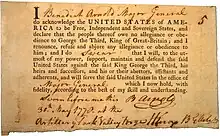 I Benedict Arnold Major General
do acknowledge the UNITED STATES of AME-
RICA to be Free, Independent and Sovereign States, and
declare that the people thereof owe no allegiance or obe-
dience to George the Third, King of Great-Britain; and I
renounce, refuse and abjure any allegiance or obedience to
him; and I do Swear that I will, to the ut-
most of my power, support, maintain and defend the said
United States against the said King George the Third, his
heirs and successors, and his or their abettors, assistants and
adherents, and will serve the said United States in the office of
Major General which I now hold, with
fidelity, according to the best of my skill and understanding.
Sworn before me this B Arnold
30th May 1778
Artillery Park Valley Forge H Knox B G Artillery
5